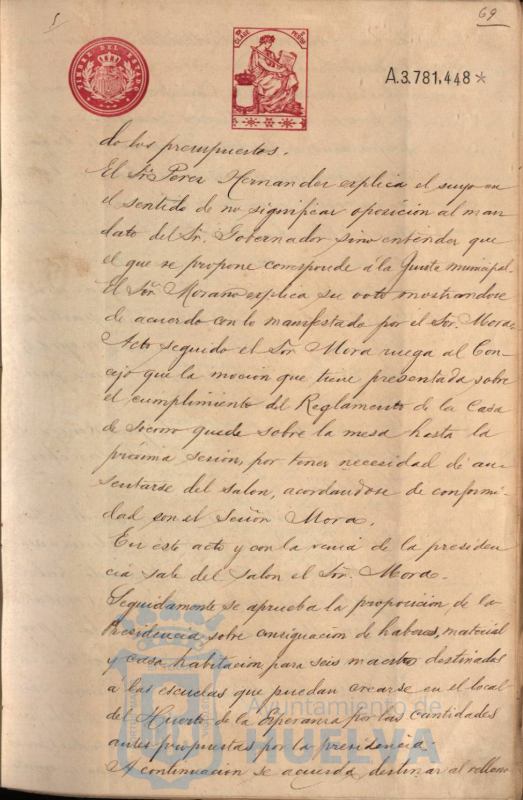 5
69
TIMBRE DEL ESTADO
CLASE
PESETAS
A.3.781,448*
do los presupuestos.
El Sr. Perez Hernandez explica el suyo en
el sentido de no significar oposicion al man
dato del Sr. Gobernador sino entender que
el que se propone corresponde á la Junta municipal.
El Sor. Moraño explica su voto mostrandose
de acuerdo con lo manifestado por el Sor. Mora.
Acto seguido el Sor Mora ruega al Con-
cejo que la mocion que tiene presentada sobre
el cumplimiento del Reglamento de la Casa
de Socorro quede sobre la mesa hasta la
próxima sesion, por tener necesidad de au
sentarse del salon, acordandose de conformi
dad con el Señor Mora.
En este acto y con la venia de la presiden
cia sale del salon el Sor. Mora.
Seguidamente se aprueba la proposicion de la
Presidencia sobre consignacion de haberes, material
y casa habitacion para seis maestros destinados
a las escuelas que puedan crearse en el local
del Huerto de la Esperanza por las cantidades
antes propuestas por la presidencia.
A continuacion se acuerda destinar al relleno
Ayuntamiento de
HUELVA